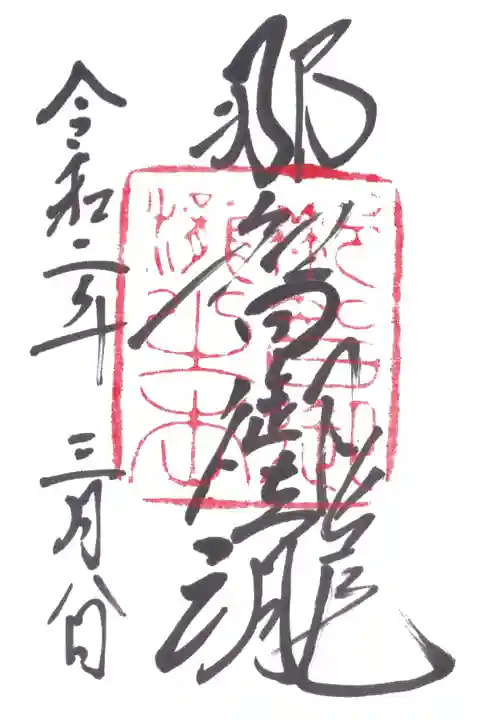 那智御瀧
令和二年 三月八日